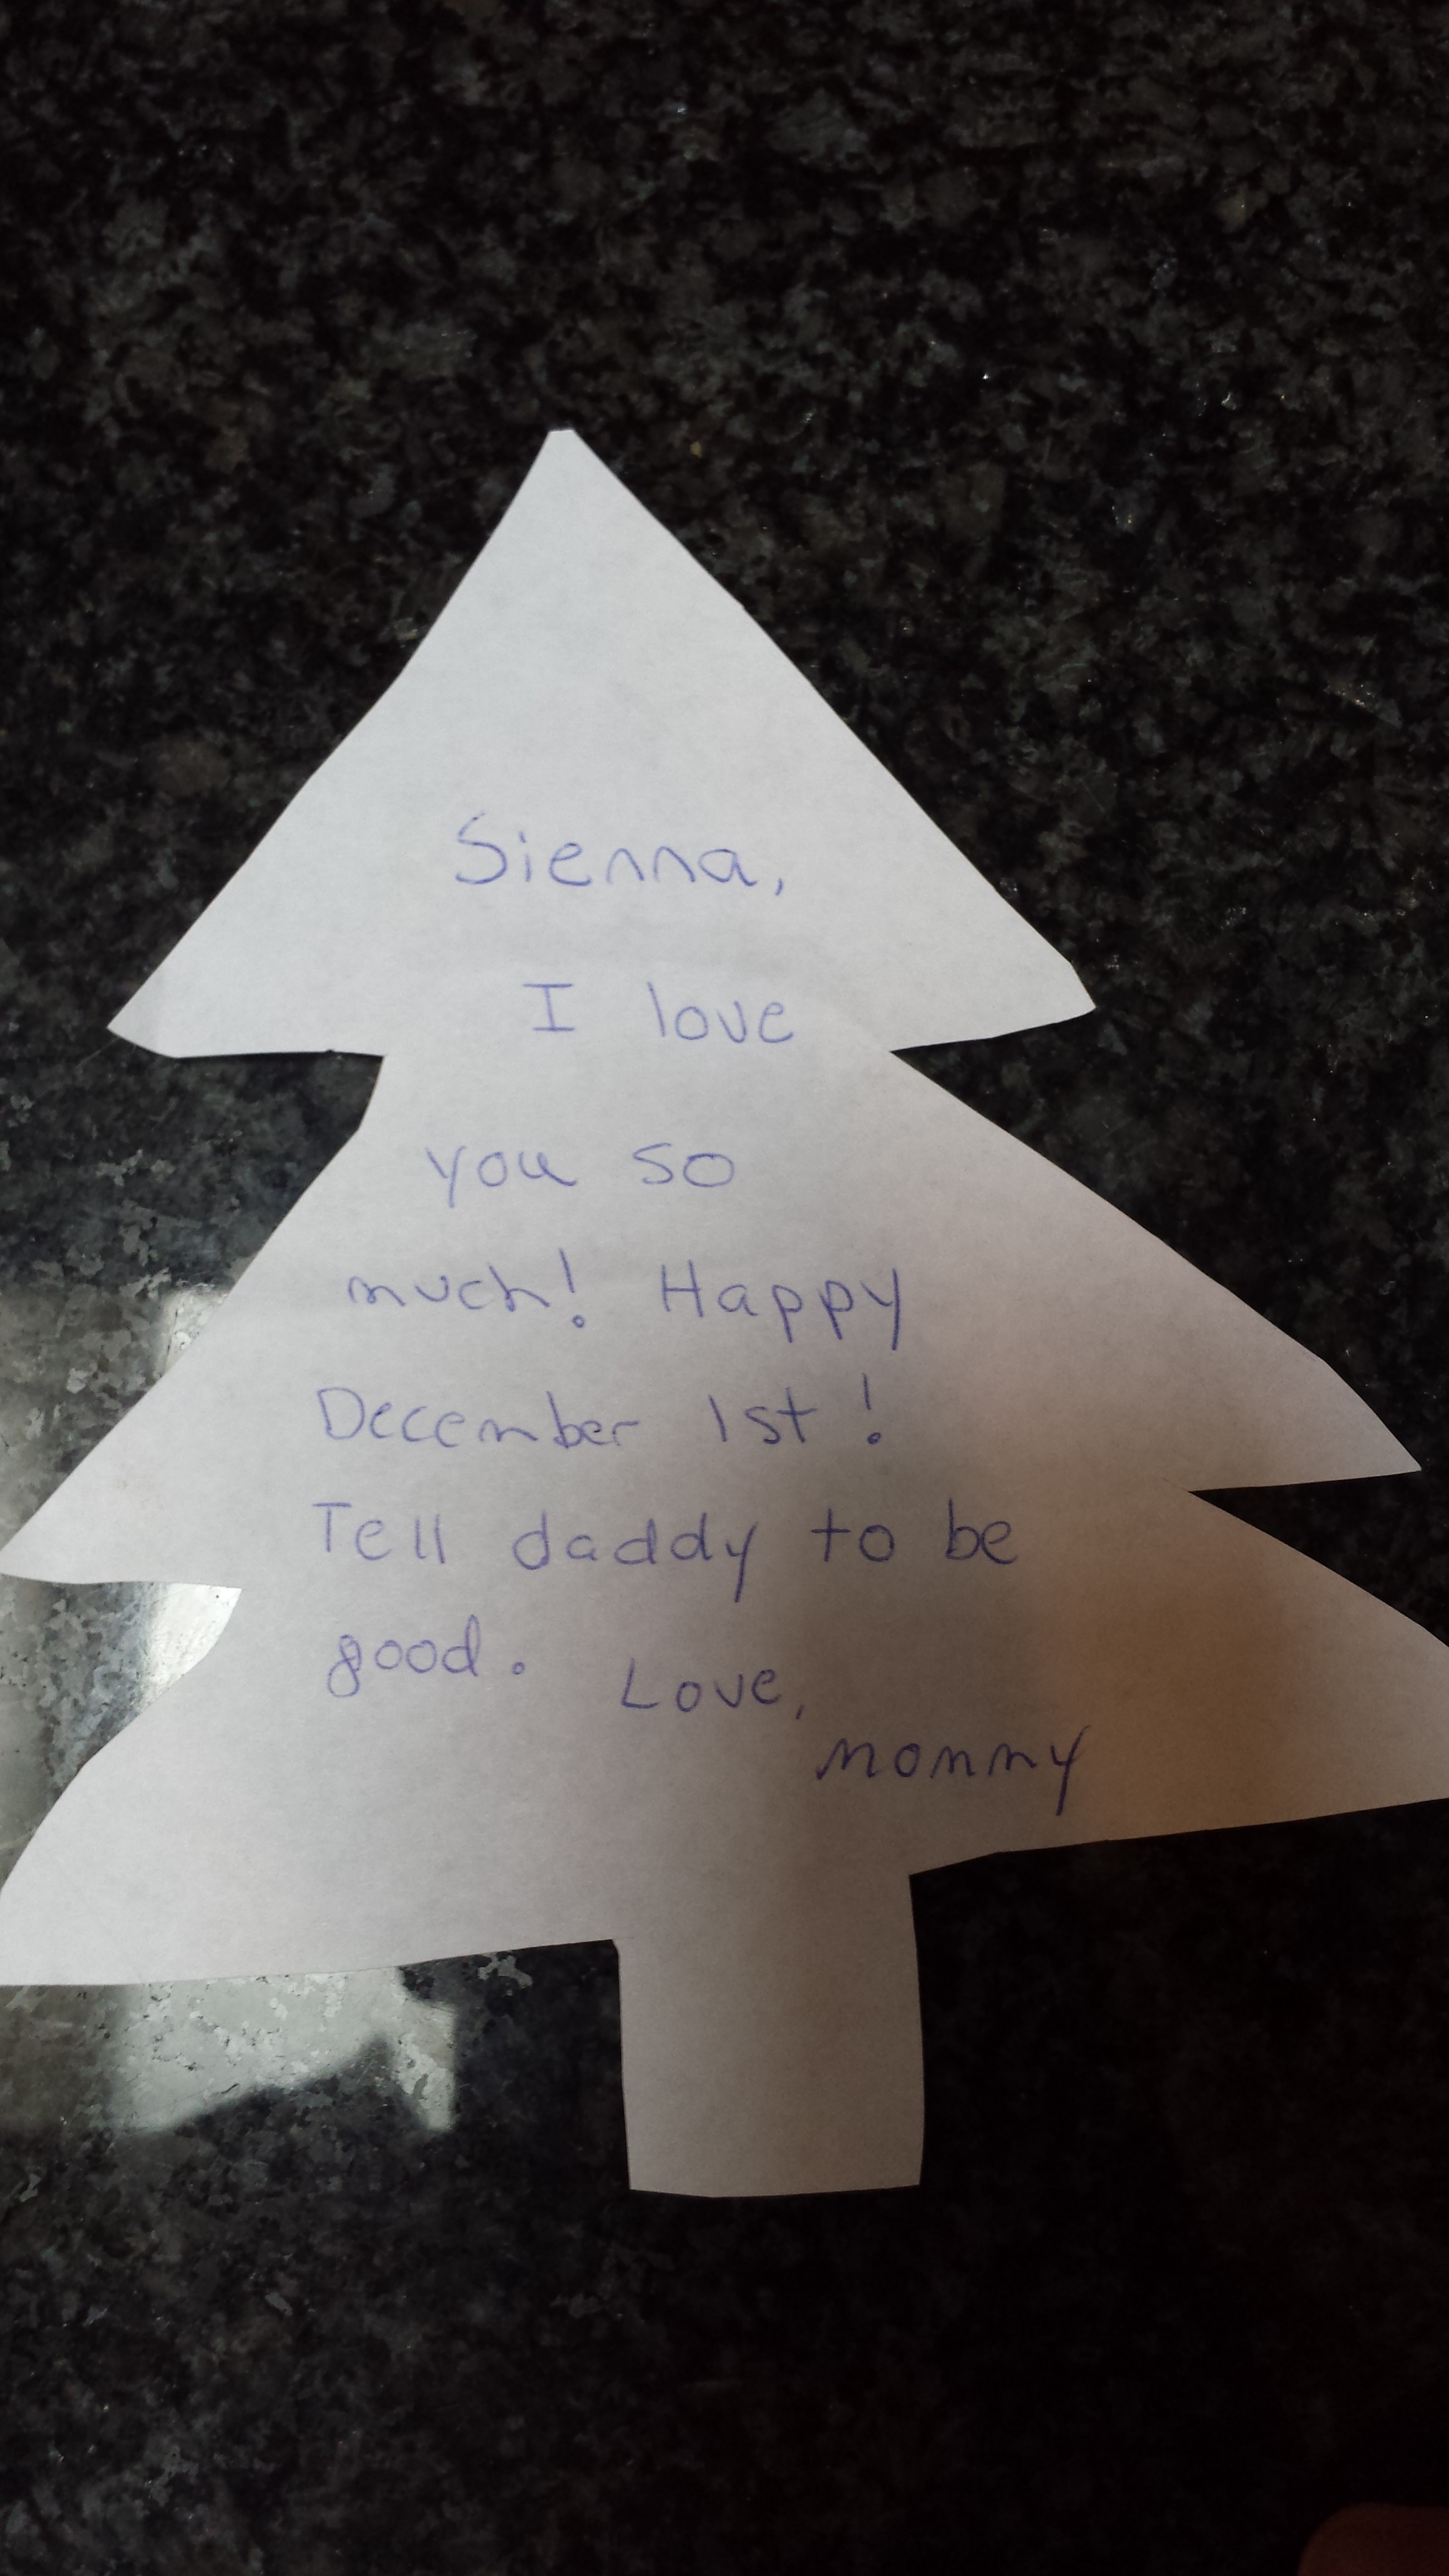 Sienna,
I love
you so
much! Happy
December 1st!
Tell daddy to be
good. Love,
mommy